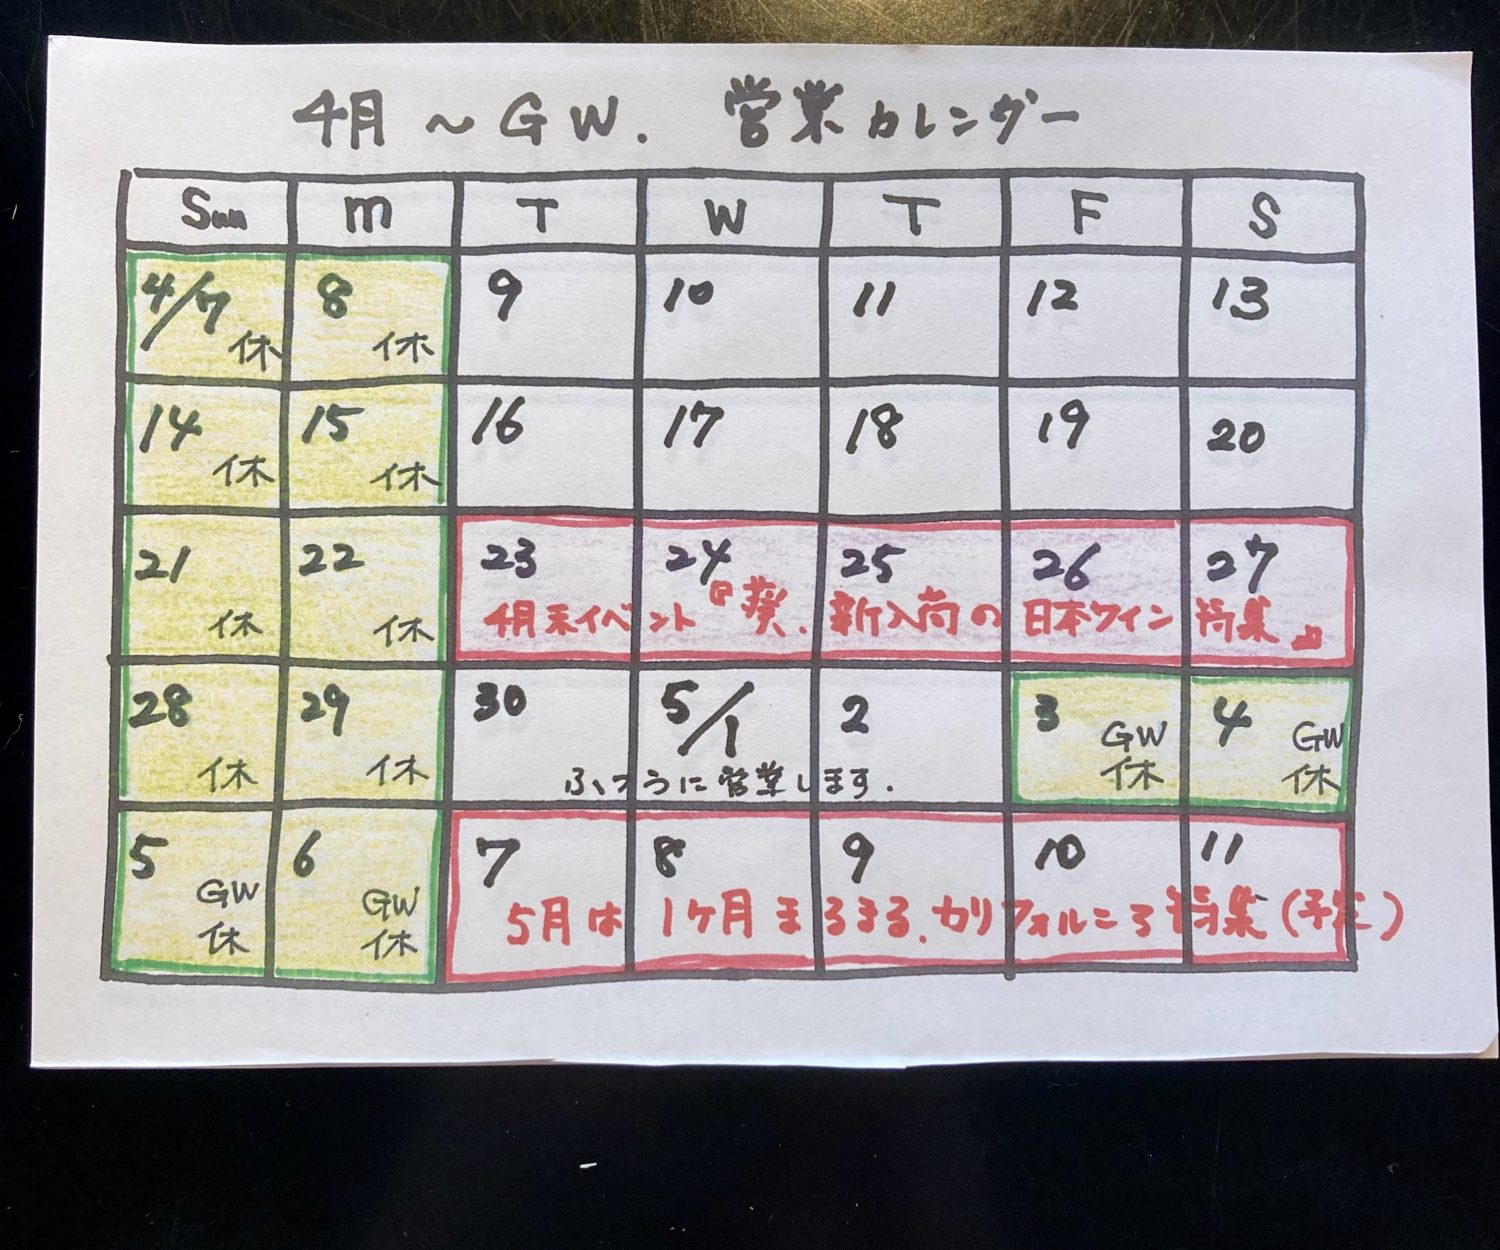 4月～GW. 営業カレンダー
Sun M T W T F S
4/7 休 8 休 9 10 11 12 13
14 休 15 休 16 17 18 19 20
21 休 22 休 23 24 25 26 27
4月末イベント『葵. 新入荷の日本ワイン特集』
28 休 29 休 30 5/1 2 3 GW休 4 GW休
ふつうに営業します.
5 GW休 6 GW休 7 8 9 10 11
5月は1ヶ月まるまる.カリフォルニう特集(予定)